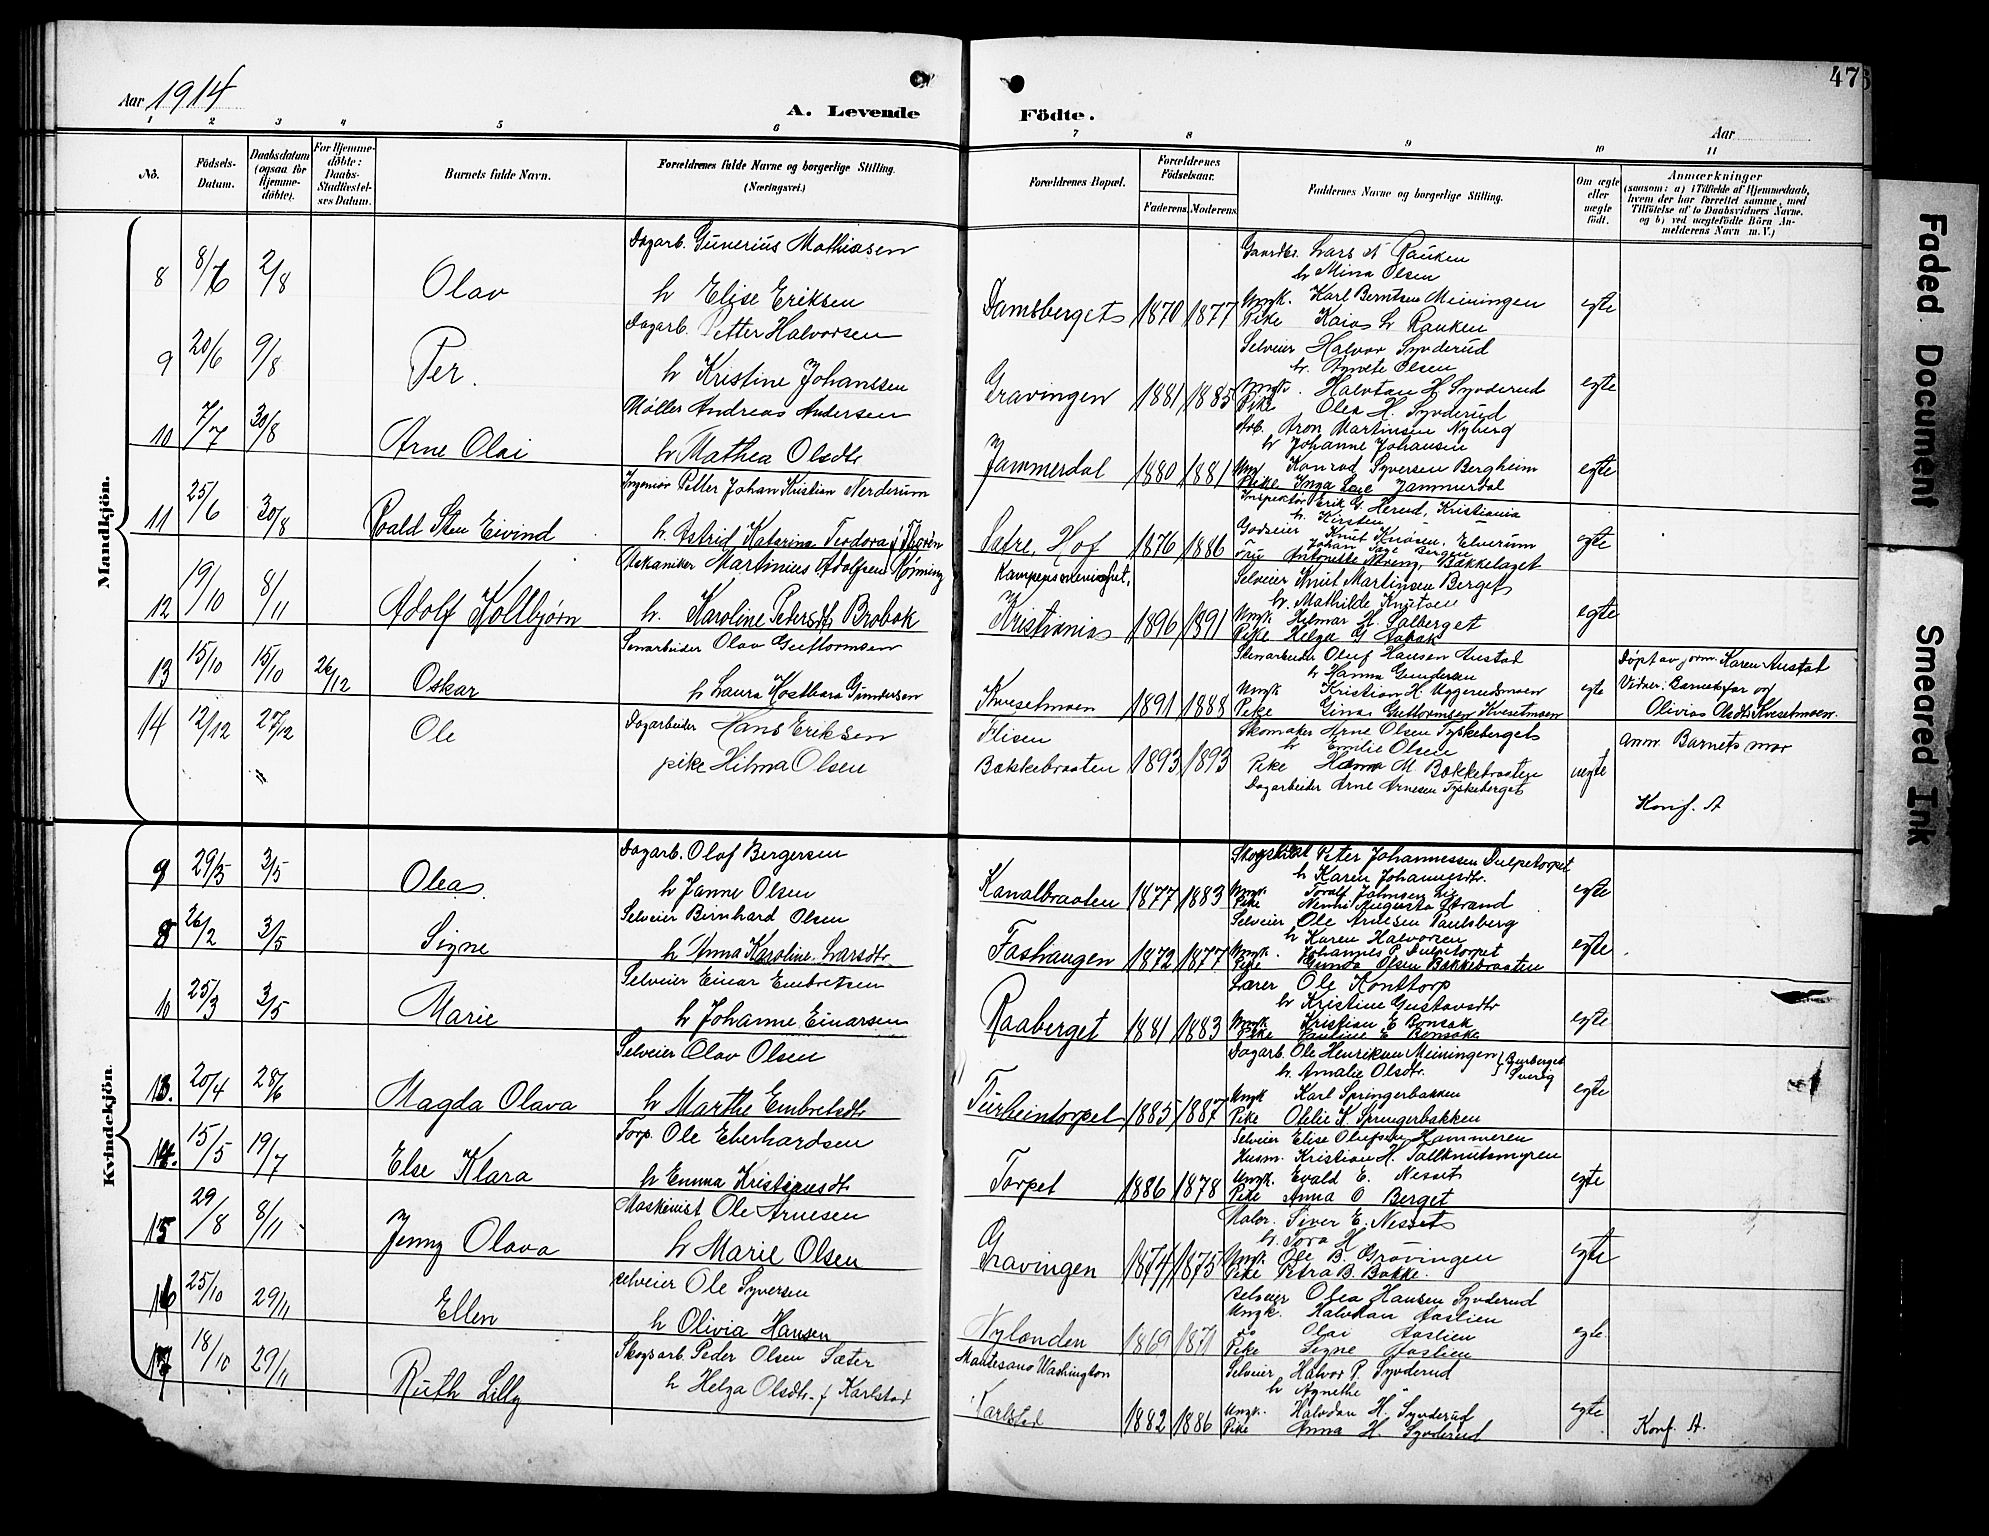 Aar 1914
A. Levende
Födte.
Aar
47
1 2 3 4 5 6 7 8 9 10 11
No.
Födsels-Datum.
Daabsdatum (ogsaa for Hjemme-döbte).
For Hjemme-döbte: Daabs-Stadfæstel-ses Datum.
Barnets fulde Navn.
Forældrenes fulde Navne og borgerlige Stilling. (Næringsvei.)
Forældrenes Bopæl.
Forældrenes Födselsaar.
Faderens. Moderens.
Faddernes Navne og borgerlige Stilling.
Om ægte eller uægte födt.
Anmærkninger
(saasom: a) i Tilfælde af Hjemmedaab,
hvem der har forrettet samme, med
Tilföielse af to Daabsvidners Navne.
og b) ved uægtefödte Börn An-
melderens Navn m. V.)
Mandkjön.
8 8/6 2/8 Olav Dagarb. Gunerius Mathiasen
h Elise Eriksen
Damsberget 1870 1877
Gaardbr. Lars A Rauken
h Mina Olsen
Ungk. Karl Berntsen Meiningen
Pike Kaia L Rauken
egte
9 20/6 9/8 Per. Dagarb. Petter Halvorsen
h Kristine Johanssen
Gravingen 1881 1885
Selveier Halvor Syvderud
h. Agnete Olsen
Ungk. Halvdan H Syvderud
Pike Olea H. Syvderud
egte
10 7/7 30/8 Arne Olai Møller Andreas Andersen
h Mathea Olsdtr
Jammerdal 1880 1881
Arb. Aron Martinsen Nyberg
h Johanne Johansen
Ung Konrad Syversen Bergheim
Pike Inga Jammerdal
egte
11 25/6 30/8 Roald Sten Eivind Ingeniør Petter Johan Kristian Nerderum
h. Astrid Katarina Teodora f. Thorén
Sætre, Hof 1876 1886
Inspektør Erik G. Herud, Kristiania
h. Kirsten
Godseier Knut Knosen, Elverum
Bergen
Antonette Streng, Bækkelaget
egte
12 19/10 8/11 Adolf Kolbjørn Mekaniker Martinius Adolfsen Rønning
h. Karoline Pedersdtr Brobak
Kampens menighet,
Kristiania 1896 1891
Selveier Knut Martinsen Berget
h. Mathilde Knutsen
Ungk. Helmar H. Salberget
Pike Helga G Aabak
egte
13 15/10 15/10 26/12 Oskar Stenarbeider Olav Guttormsen
h Laura Kostbara Gundersen
Kvesetmoen 1891 1888
Stenarbeider Oluf Hansen Austad
h Hanna Gundersen
Ungk Kristian H. Uggerudsmoen
Pike Gina Guttormsen Kvesetmoen
egte
Døpt av jorm. Karen Austad
Vidner. Barnets far og
Olivia Olsdtr Kvesetmoen.
14 12/12 27/12 Ole Dagarbeider Hans Eriksen
pike Hilma Olsen
Flisen
Bækkebraaten 1893 1893
Skomaker Arne Olsen Tyskeberget
h Emilie Olsen
Pike Hanna M. Bækkebraaten
Dagarbeider Arne Arnesen Tyskeberget
uegte
Anm. Barnets mor
Konf. A
Kvindekjön.
9 29/3 3/5 Olea Dagarb. Olof Bergersen
h Janne Olsen
Kanalbraaten 1877 1883
Peter Johannessen Dulpetorpet
h Karen Johannesdtr.
Ungk. Toralf Johnsen Lie
Pike Augusta Strand
egte
8 26/2 3/5 Signe Selveier Bernhard Olsen
h Anna Karoline Larsdtr.
Fashaugen 1872 1877
Selveier Ole Arnesen Paulsberg
h Karen Halvorsen
Ungk. Johannes P. Dulpetorpet
Pike Gunda Olsen Bækkebraaten
egte
6 25/3 3/5 Marie Selveier Einar Embretsen
h Johanne Einarsen
Raaberget 1881 1883
Lærer Ole Konttorp
h Kristine Gustavsdtr
Ungk Kristian E Bonsak
Pike Pauline E Bonsak
egte
13. 20/4 28/6 Magda Olava Selveier Olav Olsen
h Marthe Embretsdtr
Turheintorpet 1885 1887
Dagarb. Ole Henriksen Meiningen
h. Amalie Olsdtr.
Sverig
Ungk Karl Springerbakken
Pike Otelie K. Springerbakken
egte
14. 15/5 19/7 Else Klara Torp. Ole Eberhardsen
h Emma Kristiansdtr
Torpet 1886 1878
Selveier Elise Olufsen Hammeren
Husm. Kristian H. Tallknutsmyren
Ungk. Evald E. Nesset
Pike Anna O Berget
egte
15 29/8 8/11 Jenny Olava Maskinist Ole Arnesen
h Marie Olsen
Gravingen 1874 1875
Maler. Siver E. Nesset
h. Tora H
Ungk. Ole B. Gravingen
Pike Petra B. Bakke.
egte
16 25/10 29/11 Ellen Selveier Ole Syversen
h Olivia Hansen
Nylænden 1869 1871
Selveier Olea Hansen Syvderud
Ungk. Halvdan Aaslien
do Olai Aaslien
Pike Signe Aaslien
egte
17 18/10 29/11 Ruth Lilly Skogsarb. Peder Olsen Sæter
h Helga Olsdtr. f. Karlstad
Montesano Washington
Karlstad 1882 1886
Selveier Halvor P. Syvderud
h Agnethe "
Ungk. Halvdan H. Syvderud
Pike Anna H. Syvderud
egte
Konf. A.
Faded Document
Smeared Ink